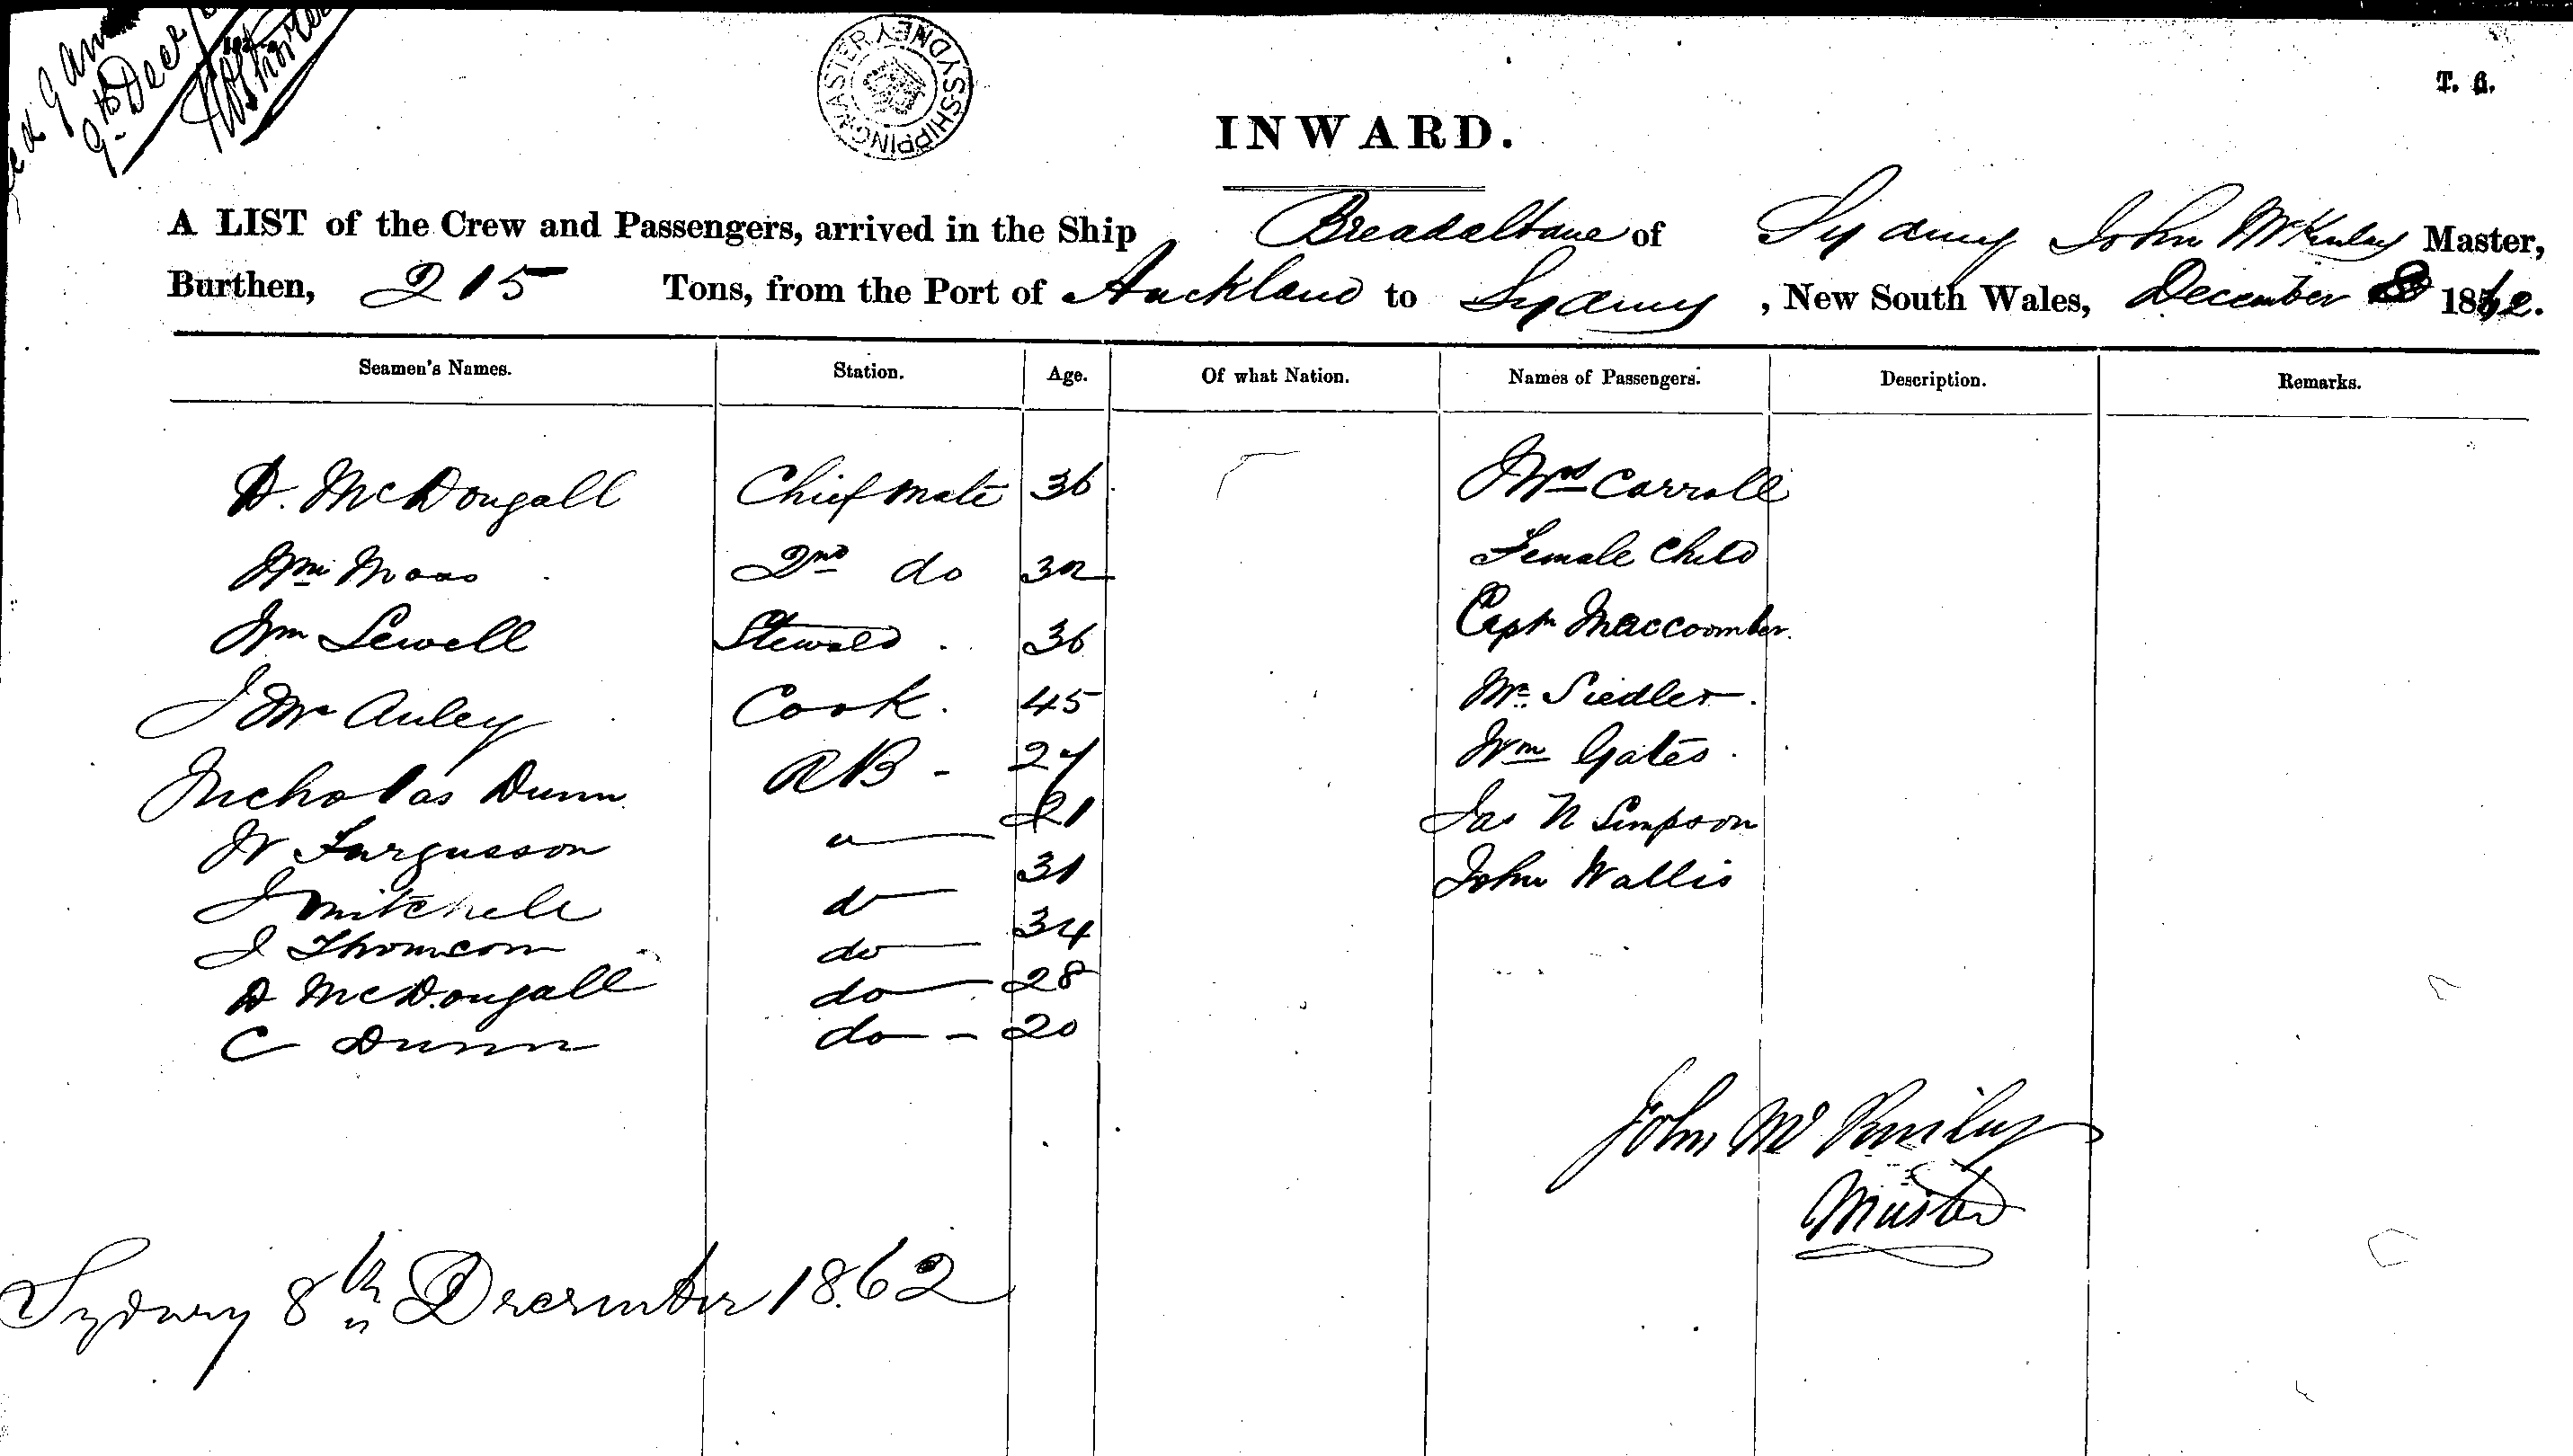 9 am
9th Decr
SHIPPING MASTER SYDNEY
T. B.
INWARD.
A LIST of the Crew and Passengers, arrived in the Ship Breadalbane of Sydney John McKinlay Master,
Burthen, 215 Tons, from the Port of Auckland to Sydney, New South Wales, December 8 1862.
Seamen's Names. Station. Age. Of what Nation. Names of Passengers. Description. Remarks.
D. McDougall Chief mate 36 Mrs Carroll
Wm Moas 2nd do 32 Female Child
Wm Sewell Steward 36 Captn Maccoomber.
J Mc Auley Cook. 45 Mr Siedler.
Nicholas Dunn AB - 27 Wm Gates
W Fargusson 21 Jas N Simpson
J Mitchell do 31 John Wallis
J Thomson do 34
D McDougall do 28
C Dunn do - 20
John Mc Kinlay
Master
Sydney 8th December 1862